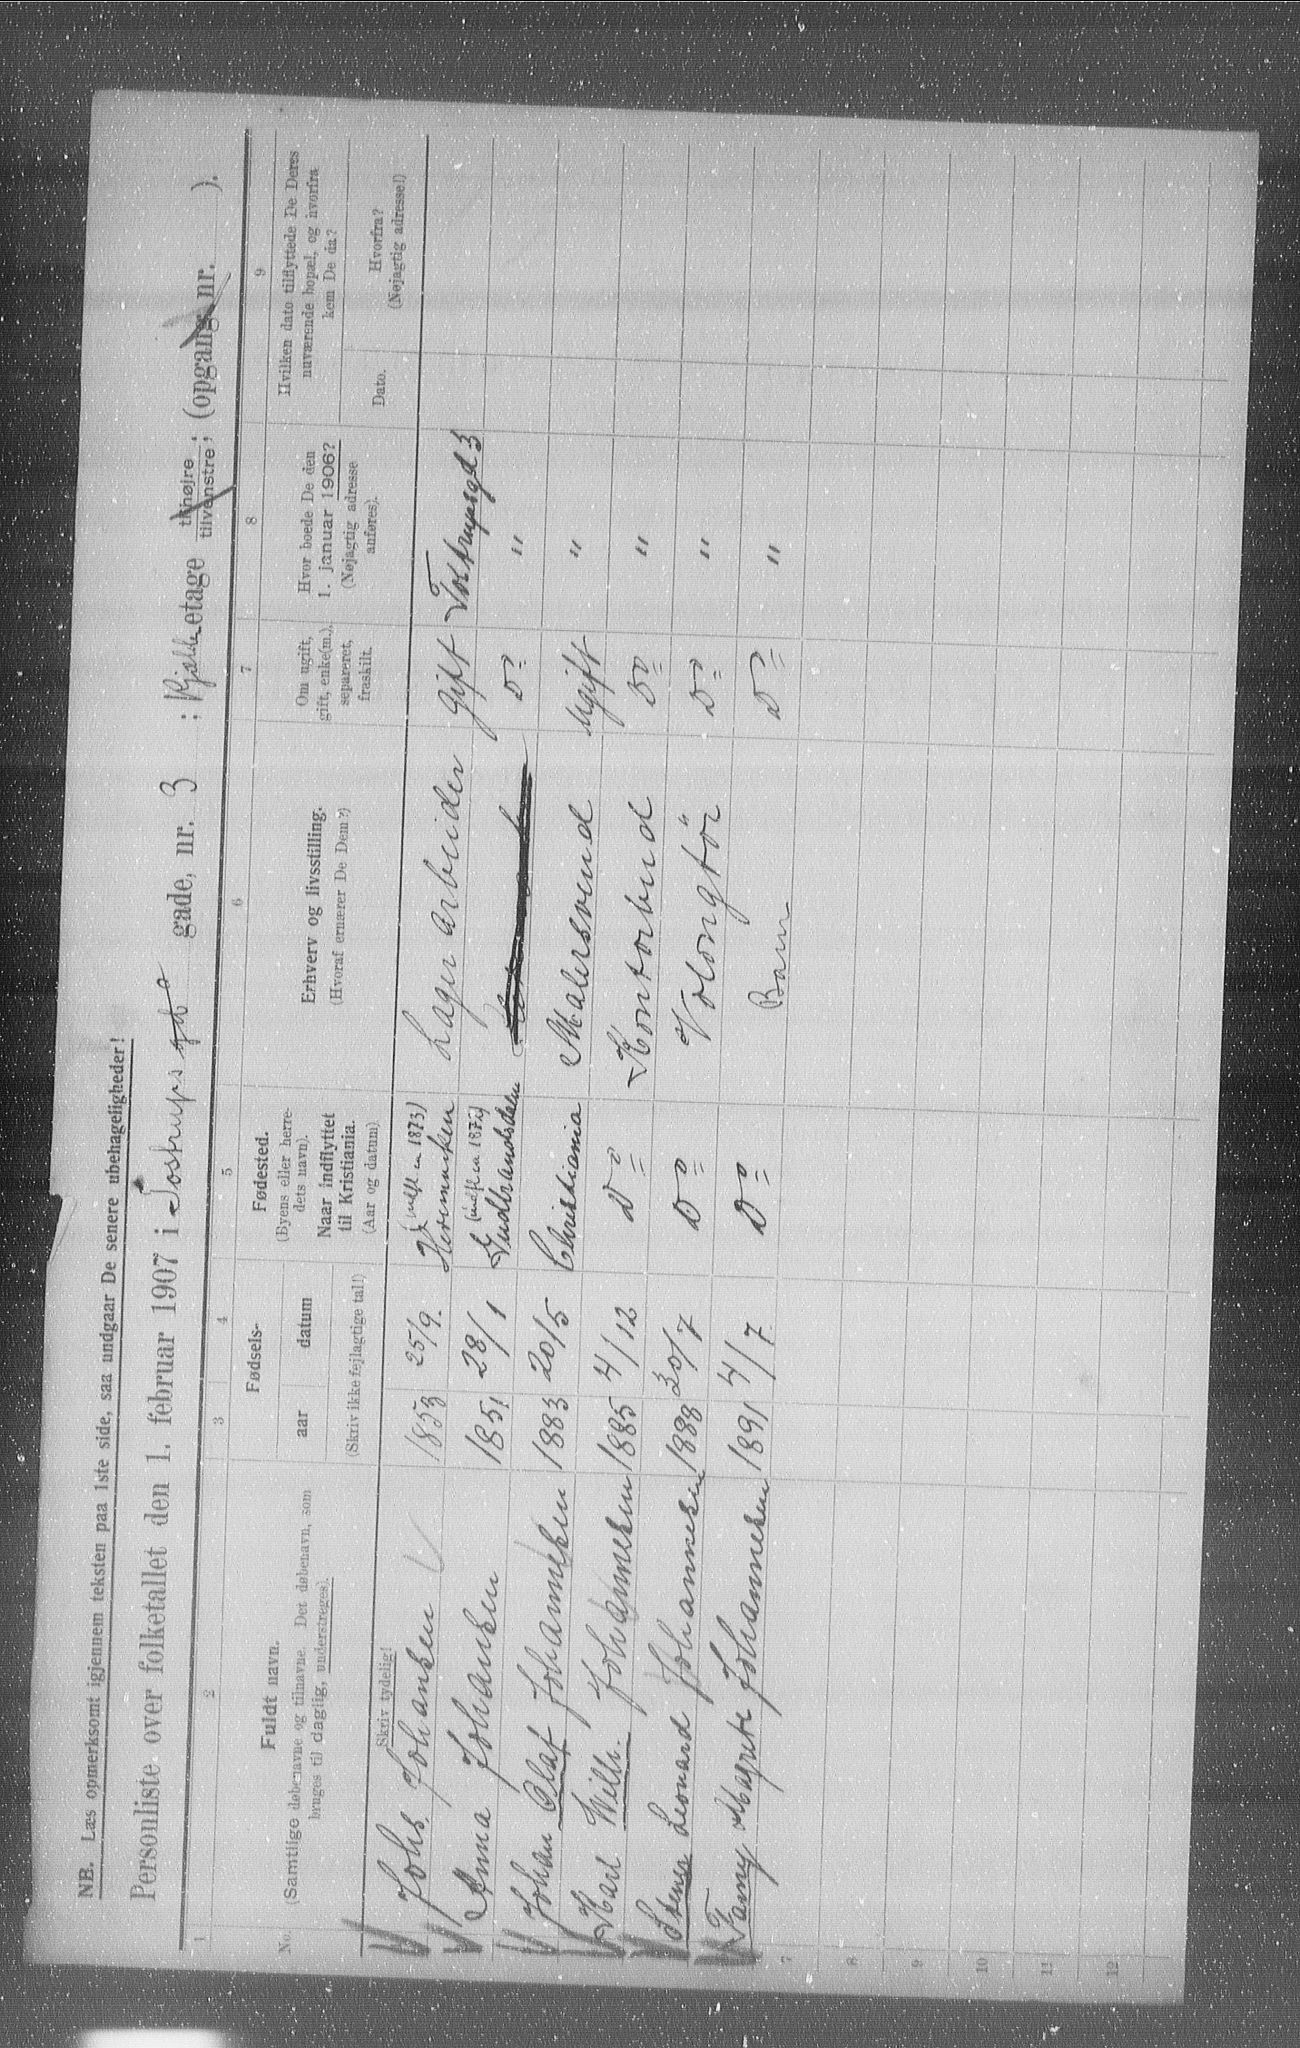 NB. Læs opmerksomt igjennem teksten paa 1ste side, saa undgaar De senere ubehageligheder!
Personliste over folketallet den 1. februar 1907 i Tostrups gd gade, nr. 3 : Kjelder etage tilhøjre tilvenstre; (opgang nr. ).
1 2 3 4 5 6 7 8 9
No. Fuldt navn. (Samtlige døbenavne og tilnavne. Det døbenavn, som bruges til daglig, understreges).
Fødsels- aar datum
Fødested. (Byens eller herredets navn). Naar indflyttet til Kristiania. (Aar og datum)
Erhverv og livsstilling. (Hvoraf ernærer De Dem?)
Om ugift, gift, enke(m.), separeret, fraskilt.
Hvor boede De den 1. januar 1906? (Nøjagtig adresse anføres).
Hvilken dato tilflyttede De Deres nuværende bopæl, og hvorfra kom De da?
Dato. Hvorfra? (Nøjagtig adresse!)
Skriv tydelig! (Skriv ikke fejlagtige tal!)
Johs. Johansen 1853 25/9. (indfl. 1873) Lager arbeider gift Tostrupsgd 3
Anna Johansen 1851 28/1 Gudbrandsdalen Do "
Johan Olaf Johannesen 1883 20/5 Christiania Malersvend Ugift "
Karl Wilh. Johannesen 1885 4/12 Do Kontorbud Do "
Leonard Johannesen 1888 20/7 Do Volongtör Do "
Fanny Magrete Johannesen 1891 4/7 Do Barn Do "
7
8
9
10
11
12